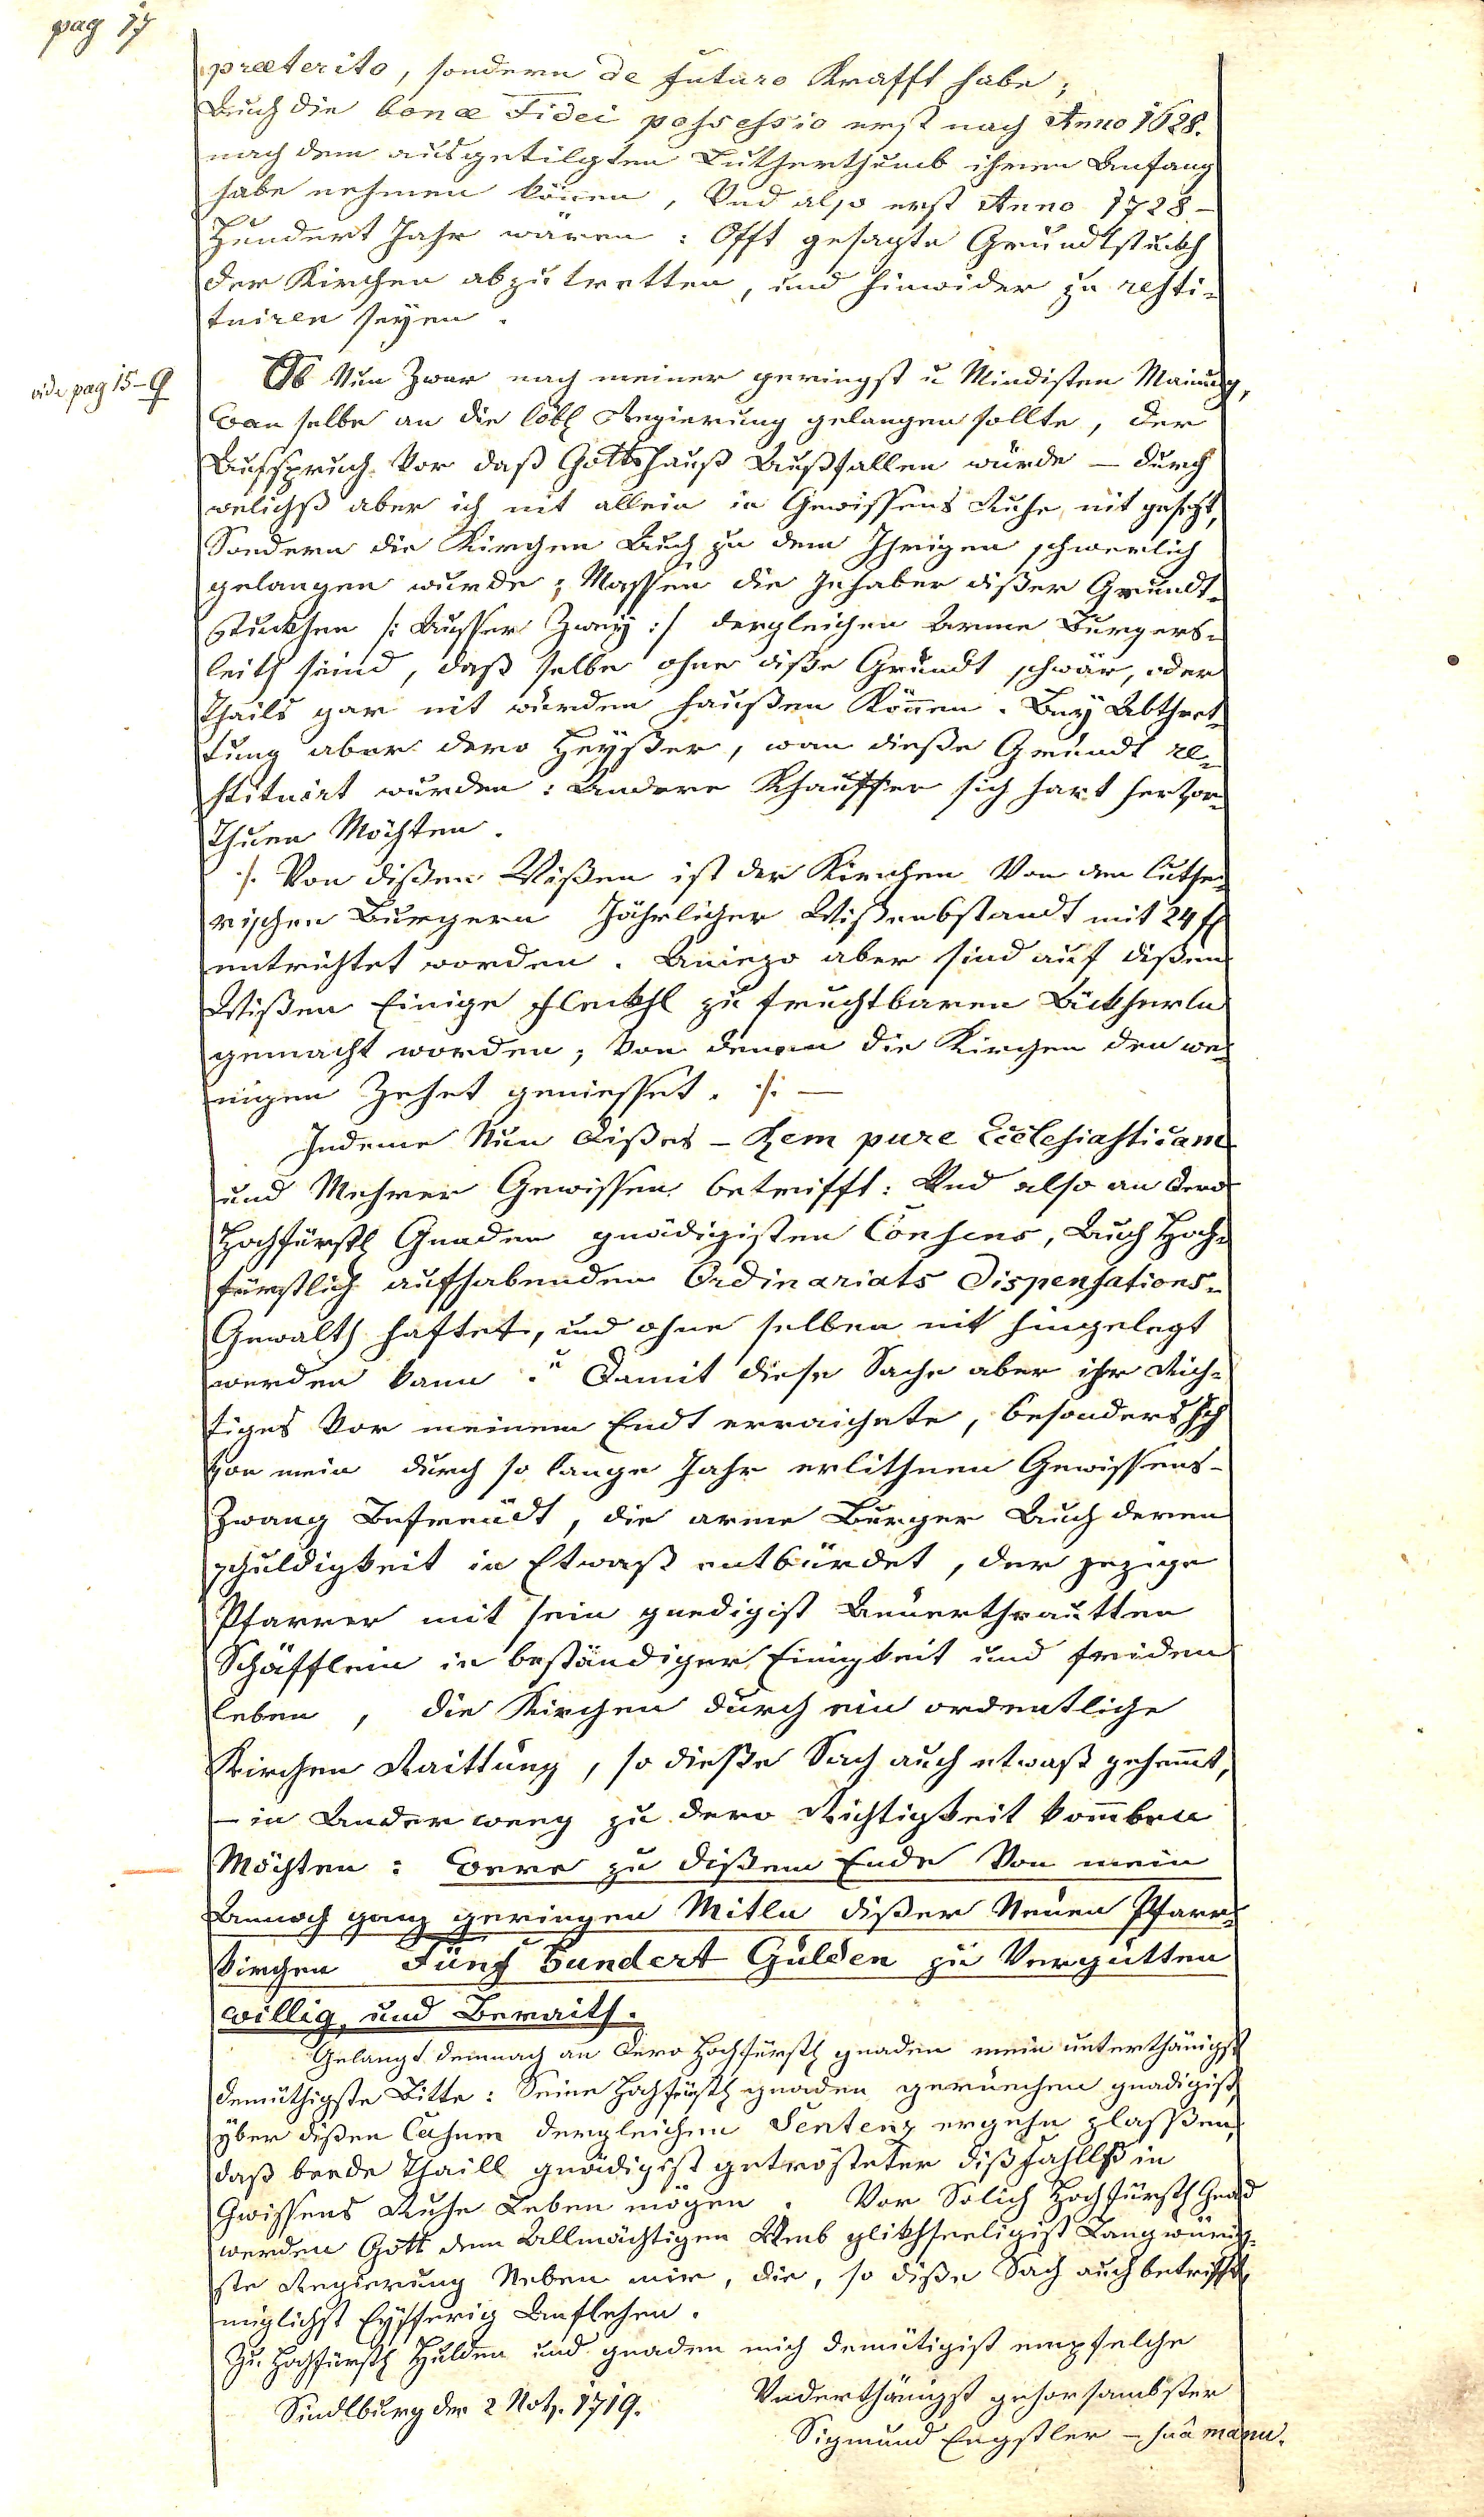 pag 17
præterito, sondern de futuro Krafft habe;
Auch die bonæ Fidei possessio erst nach Anno 1628.
nach dem ausgetilgten Lutherthumb ihren Anfang
habe nehmen könen, Und also erst Anno 1728 –
Hundert Jahr wären: Offt gesagte Grundtstukh
der Kirchen abzutretten, und hinwider zu resti-
tuiren seyen.
vide pag 15 –
Ob Nun Zwar nach meiner geringst u Mindisten Mainung,
Wan selbe an die löbl Regierung gelangen sollte, der
Aufspruch Vor daß Gottshauß Außfallen würde – durch
welichß aber ich nit allein in Gewissens Ruhe nit gesezt,
Sondern die Kirchen Auch zu dem Ihrigen schwerlich
gelangen wurde; Massen die Inhaber dißer Grundt-
stuckhen /: Ausser Zwey :/ dergleichen Arme Burgers-
leith seind, daß selbe ohne diße Grundt schwär, oder
Theils gar nit würden haußen Können. Bey Abthret-
tung aber dero Heyßer, wan dieße Grundt re-
stituirt wurden: Andere Khauffer sich hart hervor
Thuen Möchten.
/. Von dißen Wißen ist der Kirchen Von den luthe-
rischen Burgern Jährlicher Wißenbstandt mit 24 fl
entrichtet worden. Aniezo aber sind auf dißen
Wißen Einige Fleckhl zu fruchtbaren Äckherln
gemacht worden; Von denen die Kirchen den we-
nigen Zehet geniesset. /. —
Indeme Nun dißes – Rem pure Ecclesiasticam
und Mehrer Gewissen betrifft: Und also an Dero
Hochfürstl Gnaden gnädigisten Consens, Auch Hoch-
fürstlich aufhabenden Ordinariats Dispensations-
Gewalth haftet, und ohne selben nit hingelegt
werden kann. Damit diese Sache aber ihr Rich-
tiges Vor meinem Endt erraichete, besonders Ich
Von mein durch so lange Jahr erlithnen Gewissens-
Zwang Befreudt, die arme Burger Auch deren
schuldigkeit in Etwaß entbürdet, der jezige
Pfarrer mit sein gnedigist Anverthrautten
Schäfflein in beständiger Einigkeit und friden
leben, die Kirchen durch ein ordentliche
Kirchen Raittung, so dieße Sach auch etwaß gehemt,
– in Ander weeg zu dero Richtigkeit komben
Möchten: Wäre zu dißem Ende Von mein
Annoch ganz geringen Mitln dißer Neuen Pfarr-
kirchen Fünf Hundert Gulden zu Vergütten
willig und Beraith.
Gelangt demnach an Dero Hochfürstl gnaden mein unterthänigst
demüthigste Bitte: Seine Hochfürstl gnaden geruechen gnädigist,
yber dißen Casum dergleichen Sentenz ergehn zlassßen,
daß beede Thaill gnädigist getrösteter dißfahllß in
Gwissens Ruhe Leben mögen. Vor Solich Hochfürstl Gnad
werden Gott dem Allmächtigen Umb glikhseeligist Langwürig-
ste Regierung Neben mir, die, so diße Sach auch betrifft
müglichst Eyfferig Anflehen.
Zu Hochfürstl Hulden und gnaden mich demütigist empfelche
Underthänigst gehorsambster
Sindlburg den 2 Nov. 1719.
Sigmund Engstler – suâ manu.